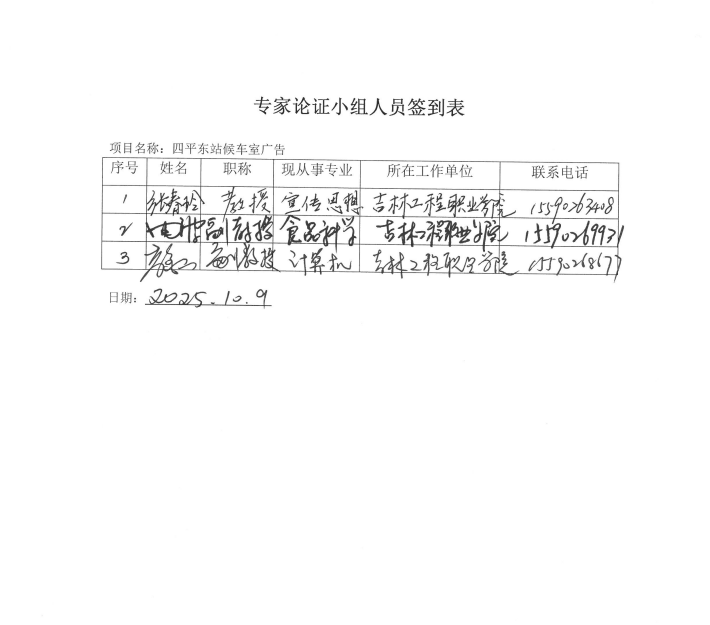 专家论证小组人员签到表
项目名称：四平东站候车室广告
序号 姓名 职称 现从事专业 所在工作单位 联系电话
1 张春玲 教授 宣传思想 吉林工程职业学院 15590263408
2 副教授 食品科学 吉林工程职业学院 15590269931
3 副教授 计算机 吉林工程职业学院 15590268677
日期：2025.10.9